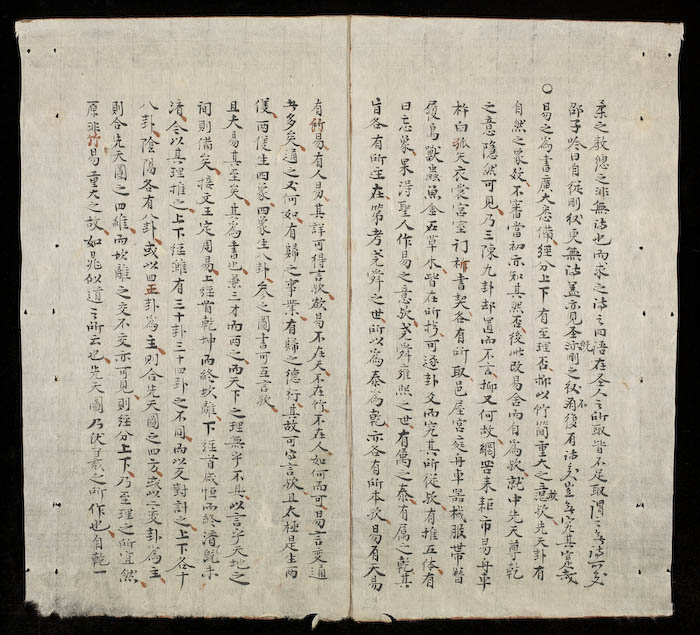 柔之教總之非無法也而求之法之內 在圣人之所取皆不足取謂之無法可矣
邵子吟曰自從刪後更無詩蓋亦見圣 刪之後 後有詩矣豈無 其定哉
○易之為書廣大悉備經分上下有至理否抑以竹簡重大之故 先天卦有
自然之象 不審當初亦知其然否後此改易合而自為 就中先天尊乾
之意隱然可見乃三陳九卦却置而不言抑又何故網罟耒耜市易舟車
杵臼弧矢衣裳宮室 書契各有所取邑屋宮庭舟車器械服帶
履鳥獸蟲魚金石草木皆在所 可逐卦爻而究其所從歟有推互体有
曰忘象果得聖人作易之意歟堯舜雍熙之世有 之泰有屬之乾其
旨各有所主在第考堯舜之世所以為泰為乾亦各有所本歟易有天易
有竹易有人易其詳可得言歟 易不在天不在竹不在人如何而可易一言变通
多矣通之又何如有歸之事業有歸之德行其故可 言歟且太極是生兩
儀兩儀生四象四象生八卦参之圖書可互言歟
且大易其至矣其為書也兼三才而兩之而天下之理無乎不具以言乎天地之
間則備矣 文王定周易上經首乾坤而終坎離下經首咸恒而終濟 未
濟合以其理推之上下經雖有三十卦三十四卦之不同而以反對計之上下各十
八卦陰陽各有八卦或以四正卦為主則合先天圖之四方或以二变卦為主
則合先天圖之四維而坎離之交不交亦可見則經分上下乃至理之所宜然
原非竹易重大之故如 似道之所云也先天圖乃伏羲之所作也自乾一